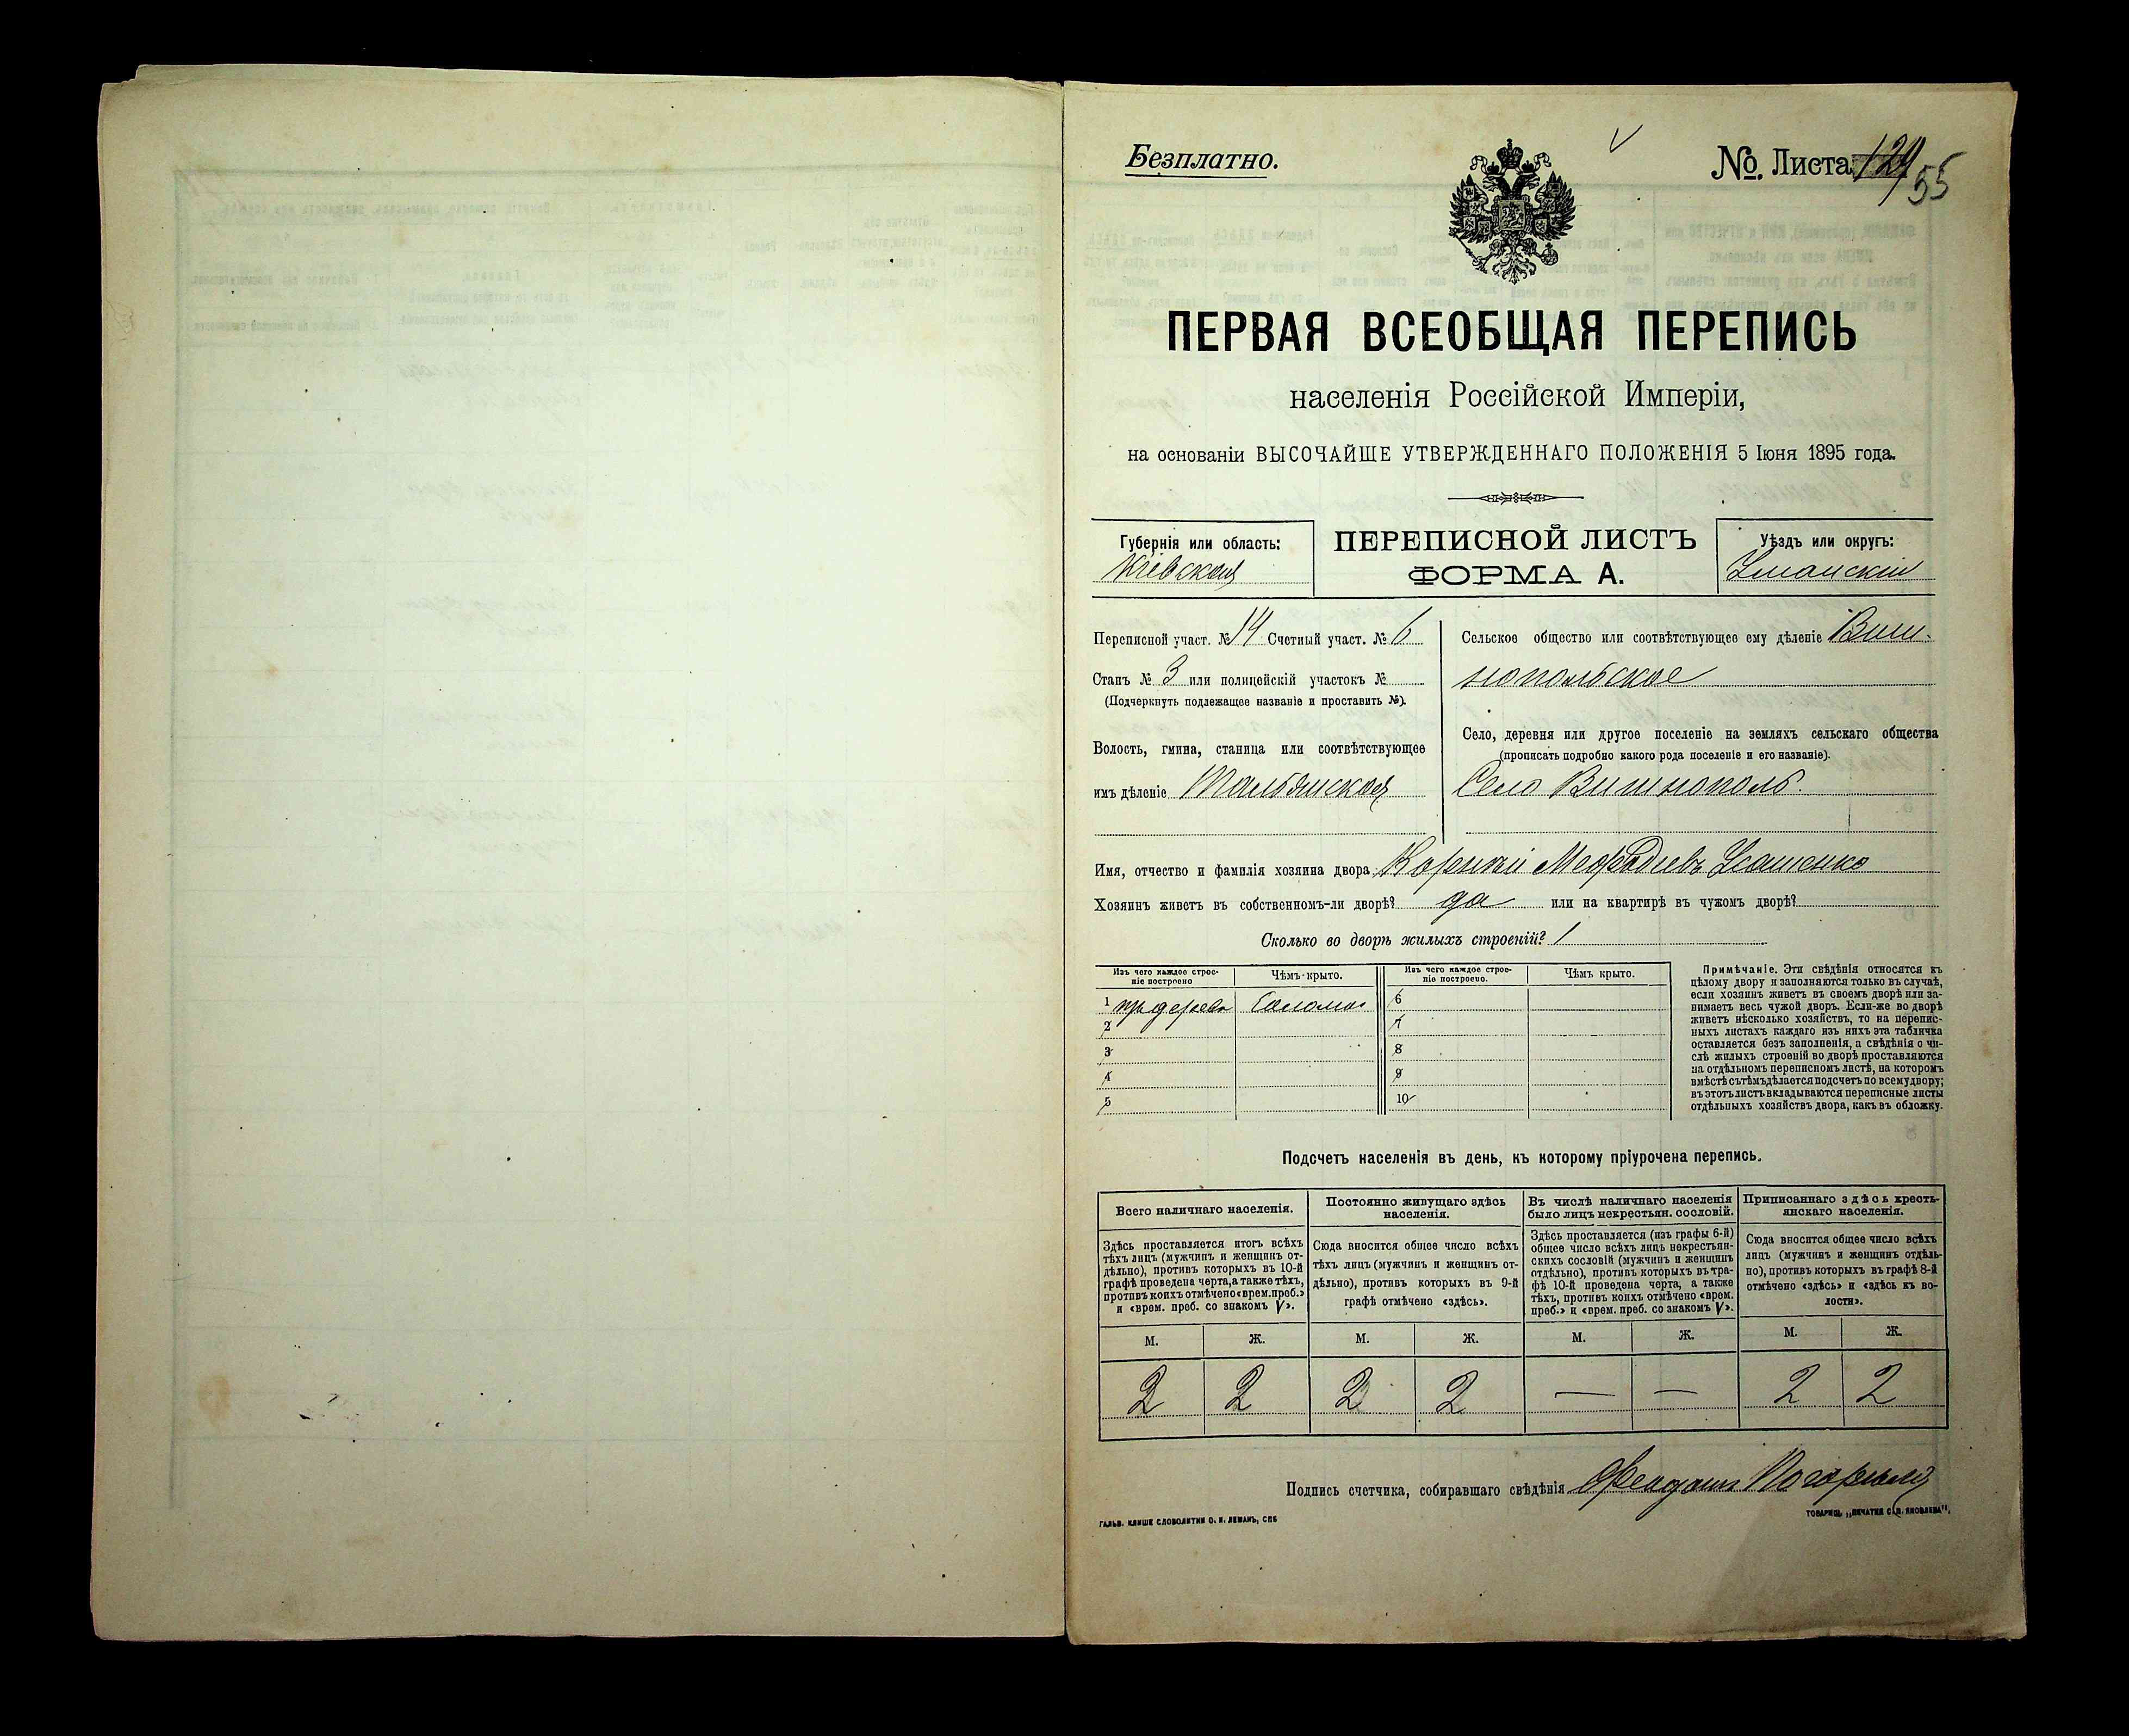 Безплатно.
№. Листа 129
55
ПЕРВАЯ ВСЕОБЩАЯ ПЕРЕПИСЬ
населенія Россійской Имперіи,
на основаніи ВЫСОЧАЙШЕ УТВЕРЖДЕННАГО ПОЛОЖЕНІЯ 5 Іюня 1895 года.
Губернія или область:
Кіевская
ПЕРЕПИСНОЙ ЛИСТЪ
ФОРМА А.
Уѣздъ или округъ:
Уманскій
Переписной участ. № 14 Счетный участ. № 6
Станъ № 3 или полицейскій участокъ №
(Подчеркнуть подлежащее названіе и проставить №).
Волость, гмина, станица или соотвѣтствующее
имъ дѣленіе Тальянская
Сельское общество или соотвѣтствующее ему дѣленіе Виш-
нопольское
Село, деревня или другое поселеніе на земляхъ сельскаго общества
(прописать подробно какого рода поселеніе и его названіе).
Село Вишнополь.
Имя, отчество и фамилія хозяина двора Корнилій Мефодіевъ
Хозяинъ живетъ въ собственномъ-ли дворѣ? да или на квартирѣ въ чужомъ дворѣ?
Сколько во дворѣ жилыхъ строеній? 1
Изъ чего каждое строе-
ніе построено
Чѣмъ крыто.
Изъ чего каждое строе-
ніе построено.
Чѣмъ крыто.
1 дерева Солома
2
3
4
5
6
7
8
9
10
Примѣчаніе. Эти свѣдѣнія относятся къ
цѣлому двору и заполняются только въ случаѣ,
если хозяинъ живетъ въ своемъ дворѣ или за-
нимаетъ весь чужой дворъ. Если-же во дворѣ
живетъ нѣсколько хозяйствъ, то на перепис-
ныхъ листахъ каждаго изъ нихъ эта табличка
оставляется безъ заполненія, а свѣдѣнія о чи-
слѣ жилыхъ строеній во дворѣ проставляются
на отдѣльномъ переписномъ листѣ, на которомъ
вмѣстѣ съ тѣмъ дѣлается подсчетъ по всему двору;
въ этотъ листъ вкладываются переписные листы
отдѣльныхъ хозяйствъ двора, какъ въ обложку.
Подсчетъ населенія въ день, къ которому пріурочена перепись.
Всего наличнаго населенія.
Здѣсь проставляется итогъ всѣхъ
тѣхъ лицъ (мужчинъ и женщинъ от-
дѣльно), противъ которыхъ въ 10-й
графѣ проведена черта, а также тѣхъ,
противъ коихъ отмѣчено «врем. преб.»
и «врем. преб. со знакомъ V».
Постоянно живущаго здѣсь
населенія.
Сюда вносится общее число всѣхъ
тѣхъ лицъ (мужчинъ и женщинъ от-
дѣльно), противъ которыхъ въ 9-й
графѣ отмѣчено «здѣсь».
Въ числѣ наличнаго населенія
было лицъ некрестьян. сословій.
Здѣсь проставляется (изъ графы 6-й)
общее число всѣхъ лицъ некрестьян-
скихъ сословій (мужчинъ и женщинъ
отдѣльно), противъ которыхъ въ гра-
фѣ 10-й проведена черта, а также
тѣхъ, противъ коихъ отмѣчено «врем.
преб.» и «врем. преб. со знакомъ V».
Приписаннаго здѣсь кресть-
янскаго населенія.
Сюда вносится общее число всѣхъ
лицъ (мужчинъ и женщинъ отдѣль-
но), противъ которыхъ въ графѣ 8-й
отмѣчено «здѣсь» и «здѣсь къ во-
лости».
М. Ж. М. Ж. М. Ж. М. Ж.
2 2 2 2 — — 2 2
Подпись счетчика, собиравшаго свѣдѣнія
ГАЛЬВ. КЛИШЕ СЛОВОЛИТНИ О. И. ЛЕМАНЪ, СПБ
ТОВАРИЩ. „ПЕЧАТНЯ С. П. ЯКОВЛЕВА“.